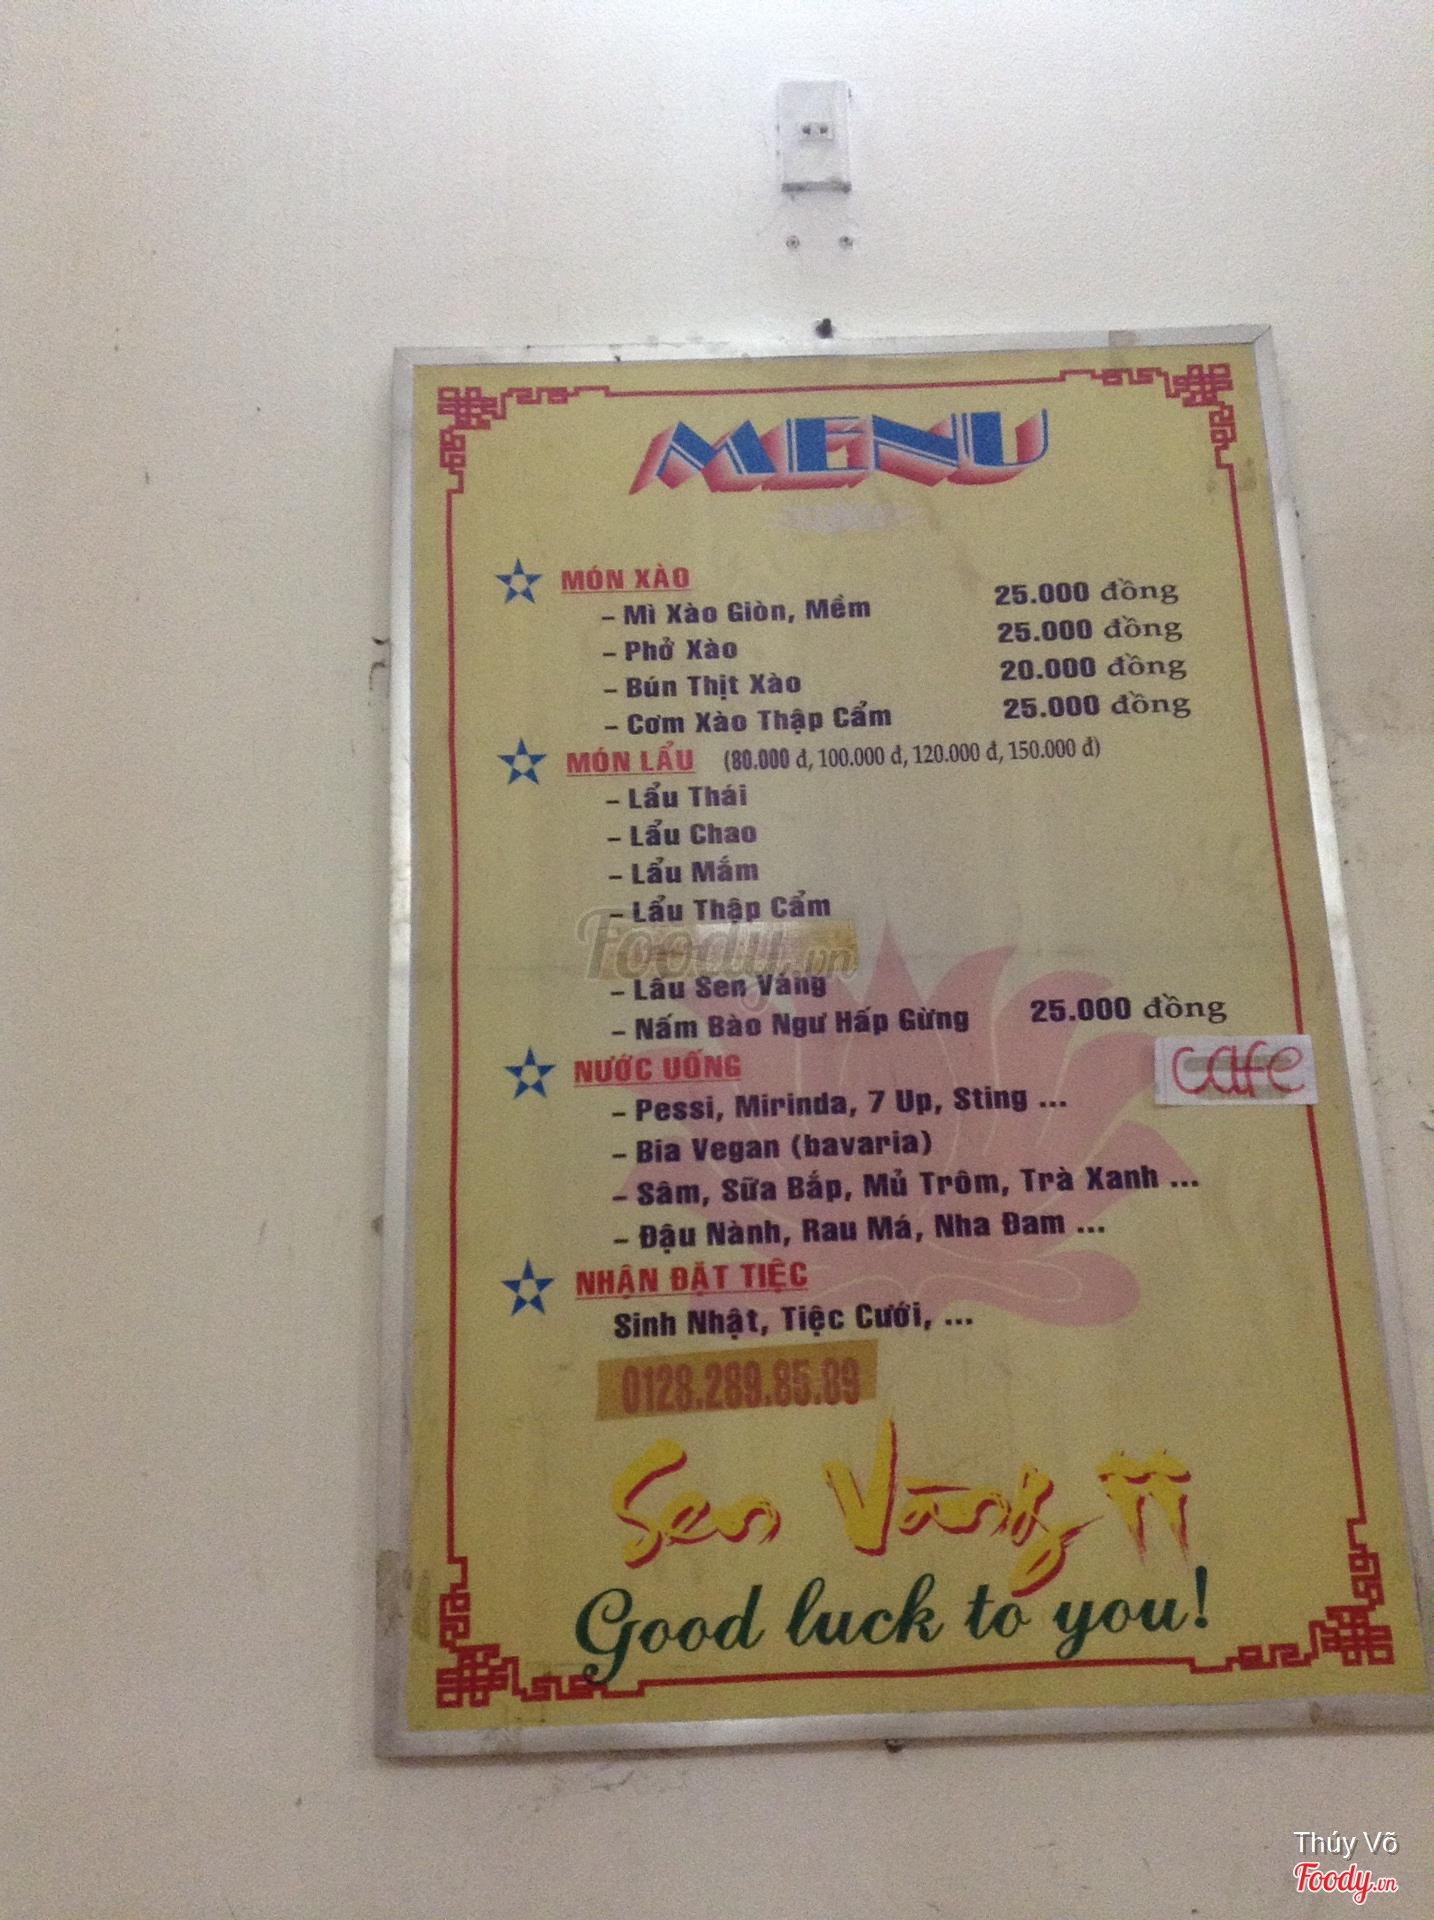 MENU
MÓN XÀO
- Mì Xào Giòn, Mềm 25.000 đồng
- Phở Xào 25.000 đồng
- Bún Thịt Xào 20.000 đồng
- Cơm Xào Thập Cẩm 25.000 đồng
MÓN LẨU (80.000 đ, 100.000 đ, 120.000 đ, 150.000 đ)
- Lẩu Thái
- Lẩu Chao
- Lẩu Mắm
- Lẩu Thập Cẩm
Foody.vn
- Lẩu Sen Vàng
- Nấm Bào Ngư Hấp Gừng 25.000 đồng
NƯỚC UỐNG
cafe
- Pessi, Mirinda, 7 Up, Sting ...
- Bia Vegan (bavaria)
- Sâm, Sữa Bắp, Mủ Trôm, Trà Xanh ...
- Đậu Nành, Rau Má, Nha Đam ...
NHẬN ĐẶT TIỆC
Sinh Nhật, Tiệc Cưới, ...
0128.289.85.89
Sen Vàng II
Good luck to you!
Thúy Võ
Foody.vn